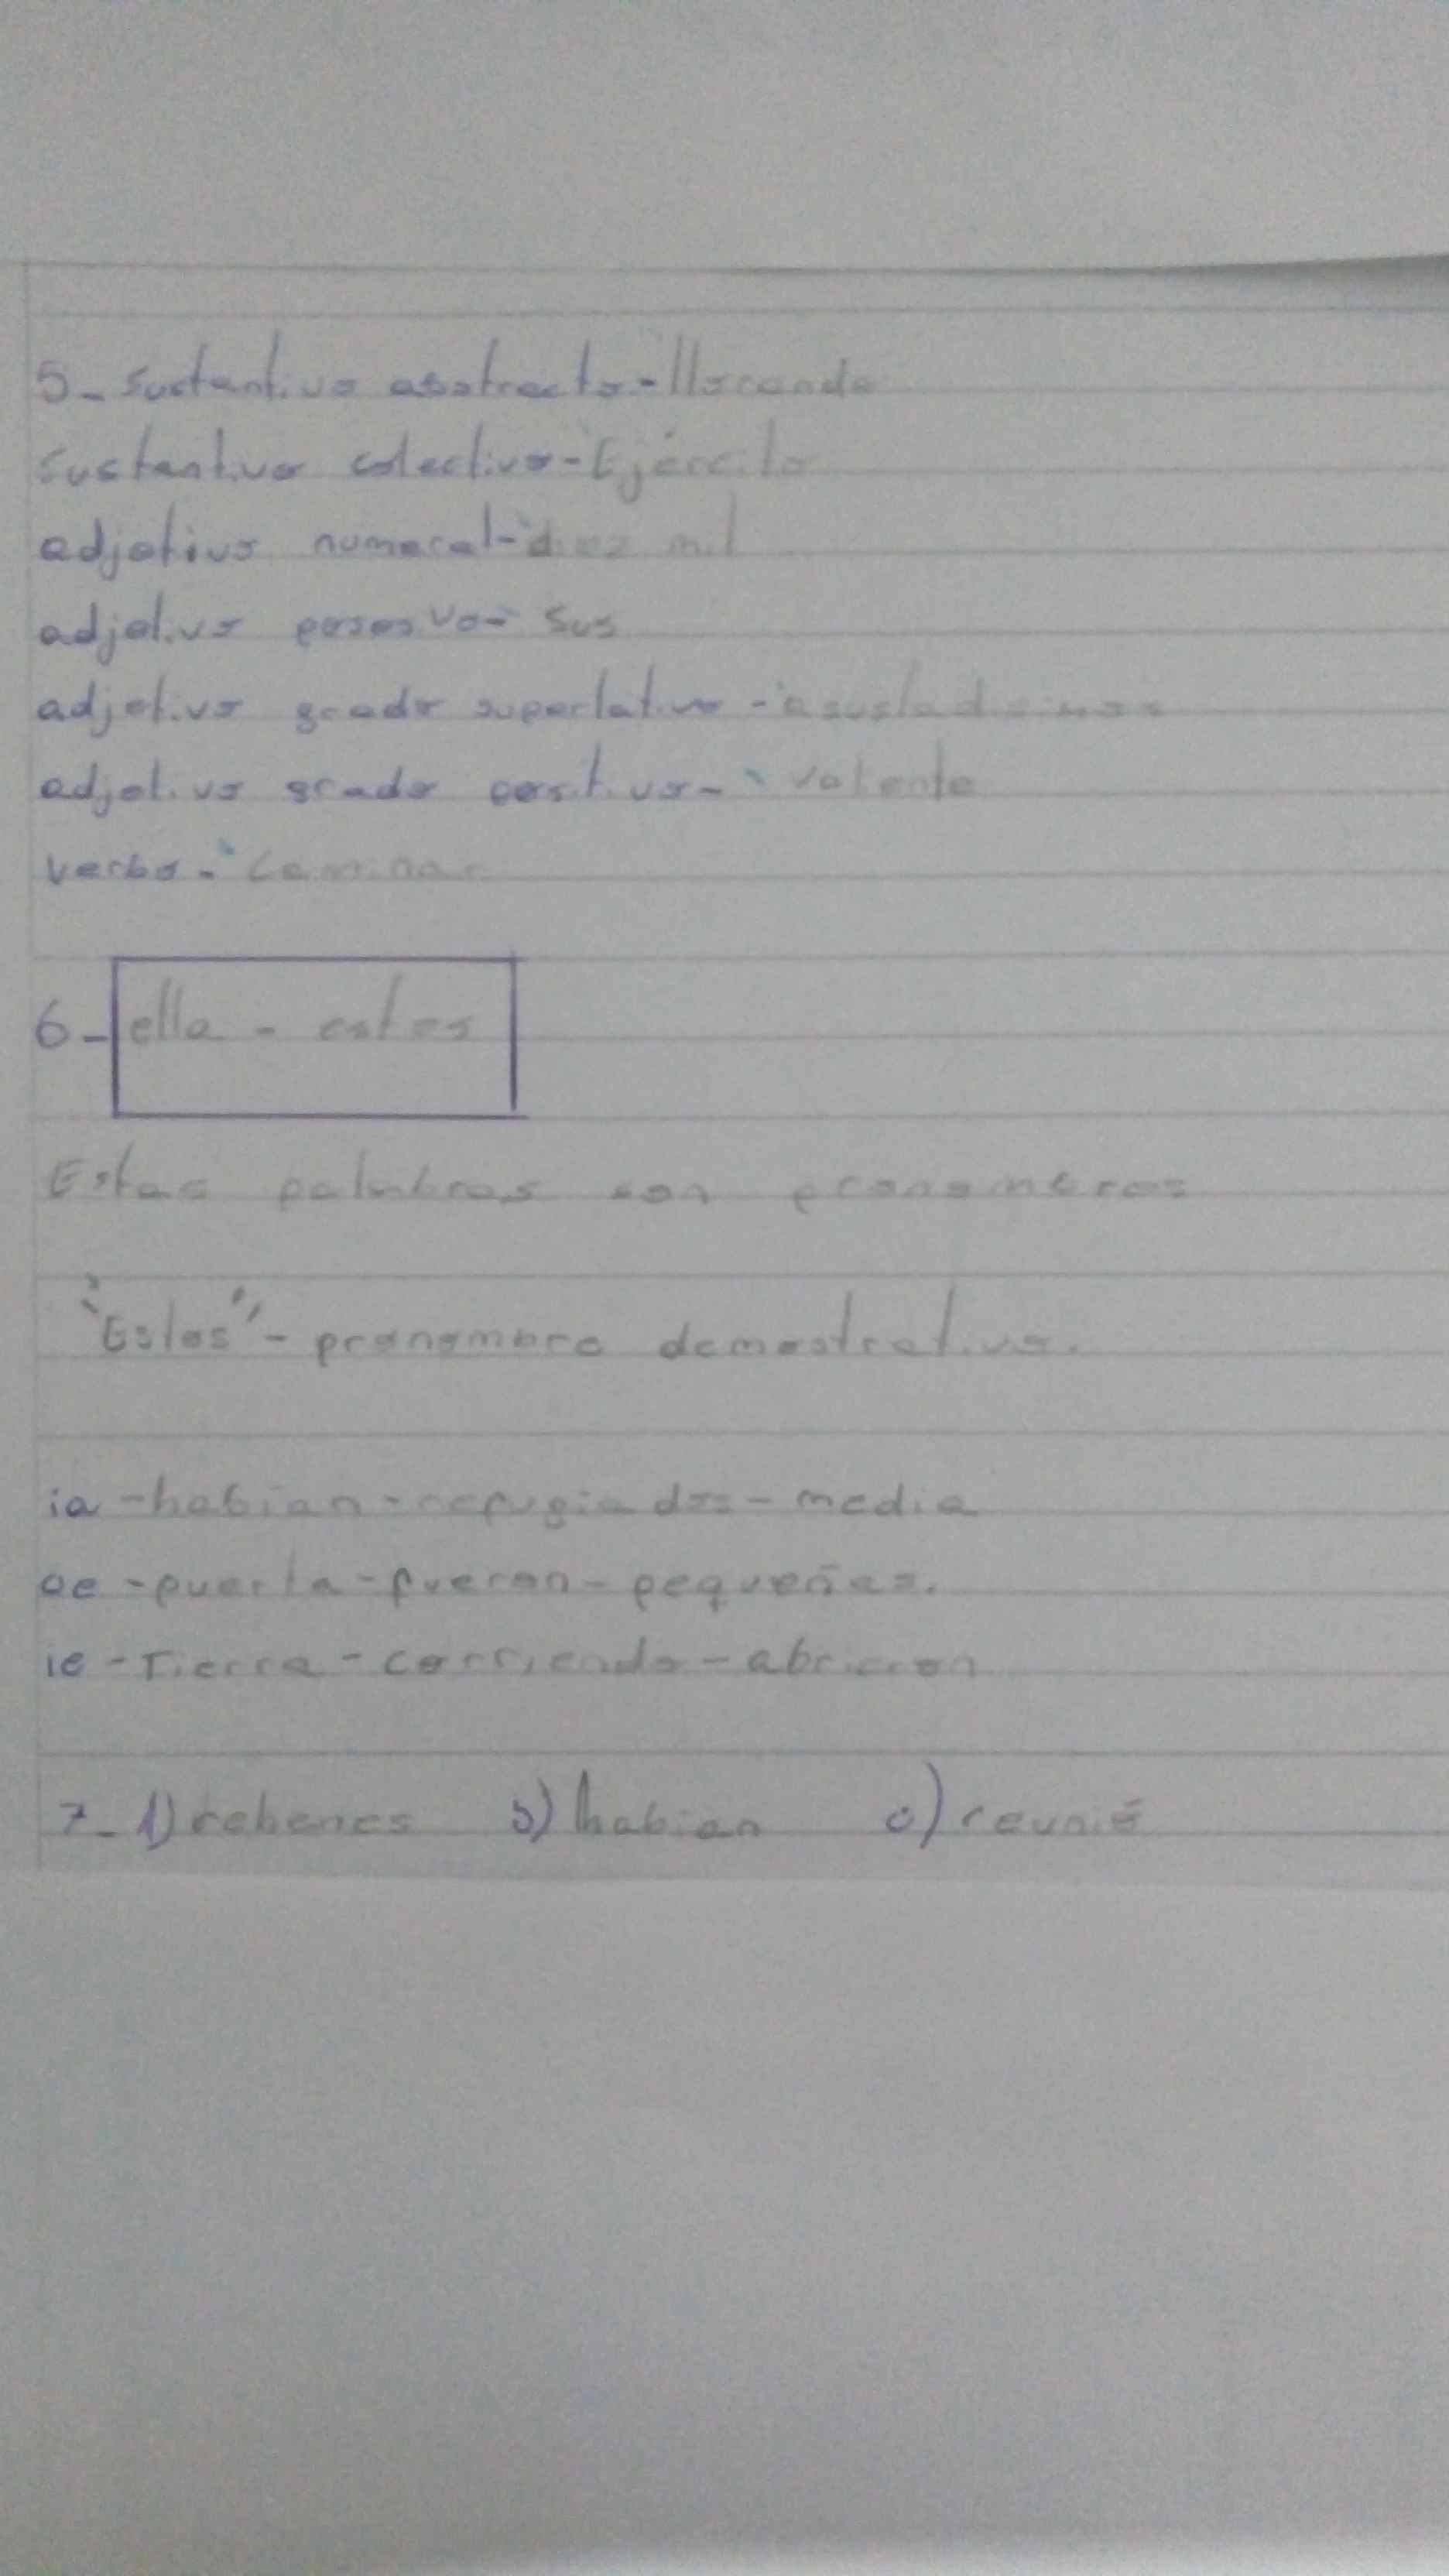 5- Sustantivo abstracto - llorando
Sustantivo colectivo - Ejército
adjetivo numeral - diez mil
adjetivo posesivo - Sus
adjetivo grado superlativo -
adjetivo grado positivo - valiente
verbo - Caminar
6- ella - estos
Estas palabras son pronombres
"Estos" - pronombre demostrativo.
ia - habian - refugiados - media
ue - puerta - fueron - pequeñas.
ie - Tierra - corriendo - abrieron
7- 1) rehenes b) habian c) reunió